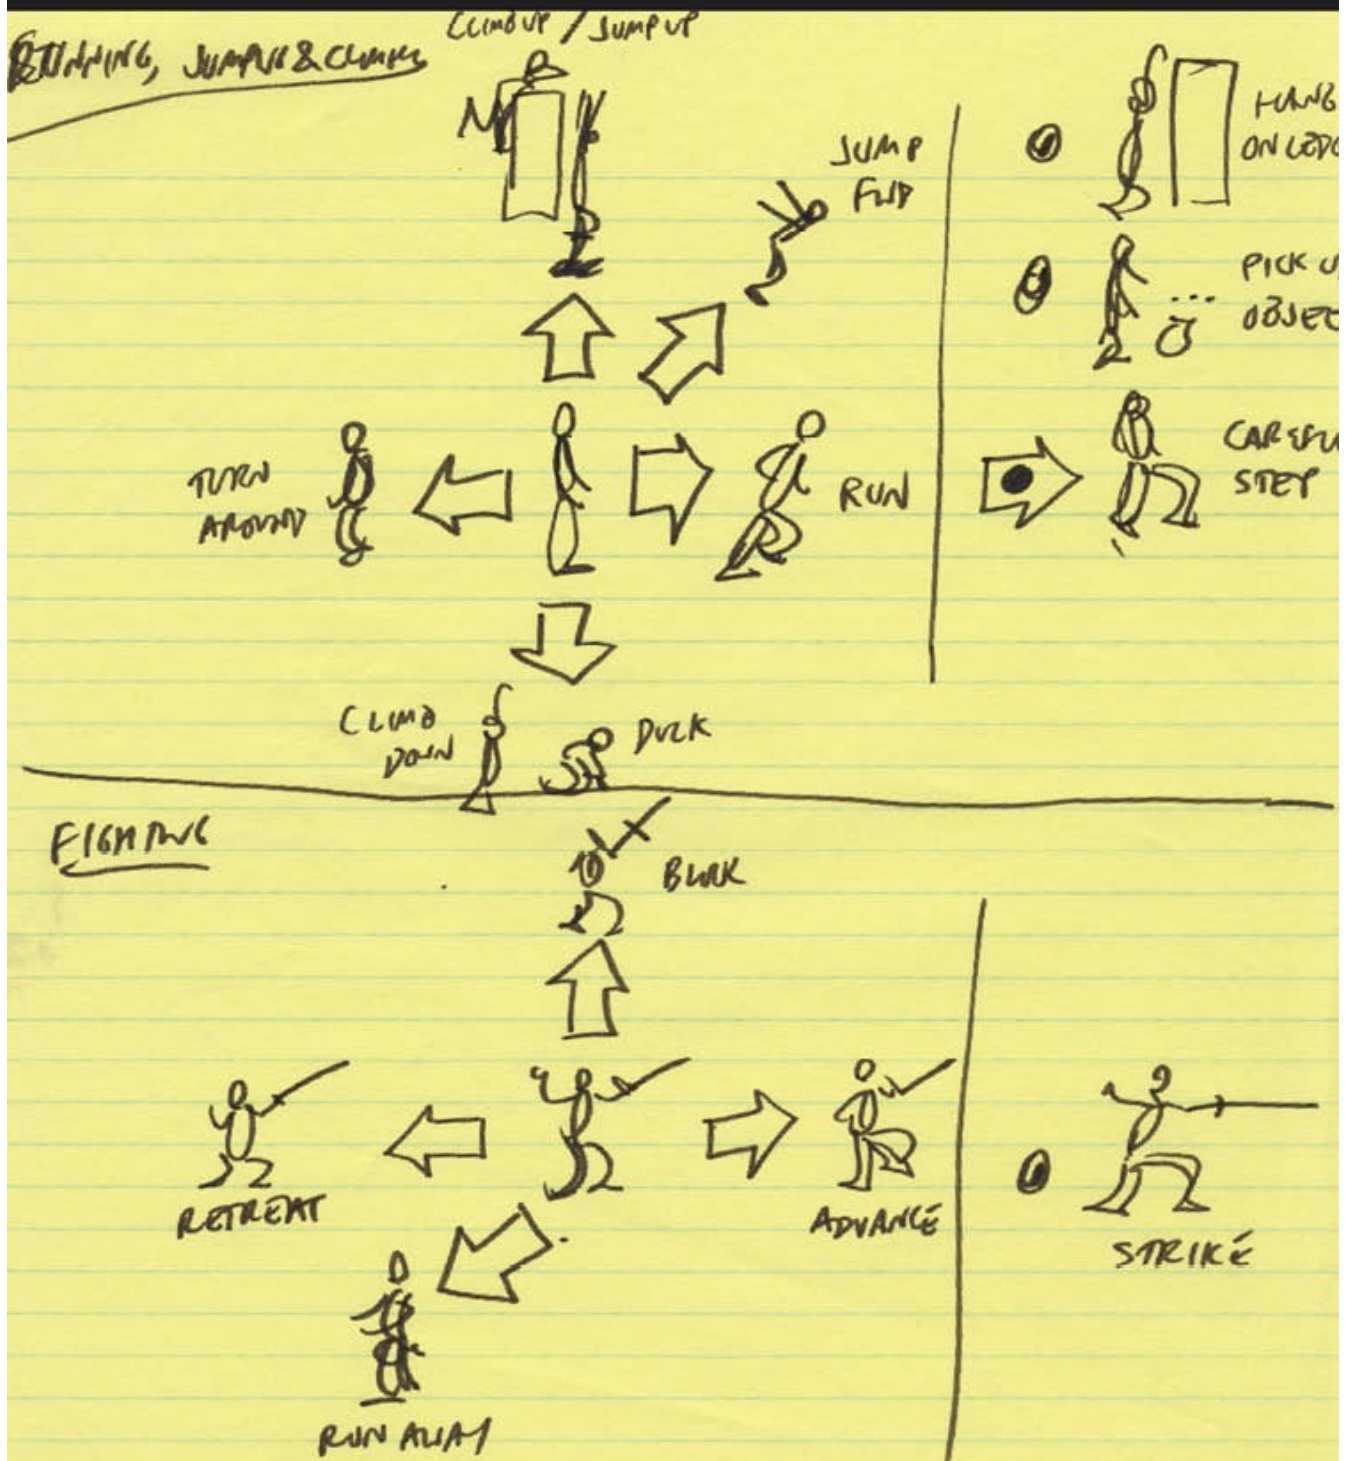 RUNNING, JUMPING & CLIMBING
CLIMB UP / JUMP UP
JUMP
FWD
HANG
ON LEDG
PICK U
OBJEC
TURN
AROUND
RUN
CAREFU
STEP
CLIMB
DOWN
DUCK
FIGHTING
BLOCK
RETREAT
ADVANCE
STRIKE
RUN AWAY